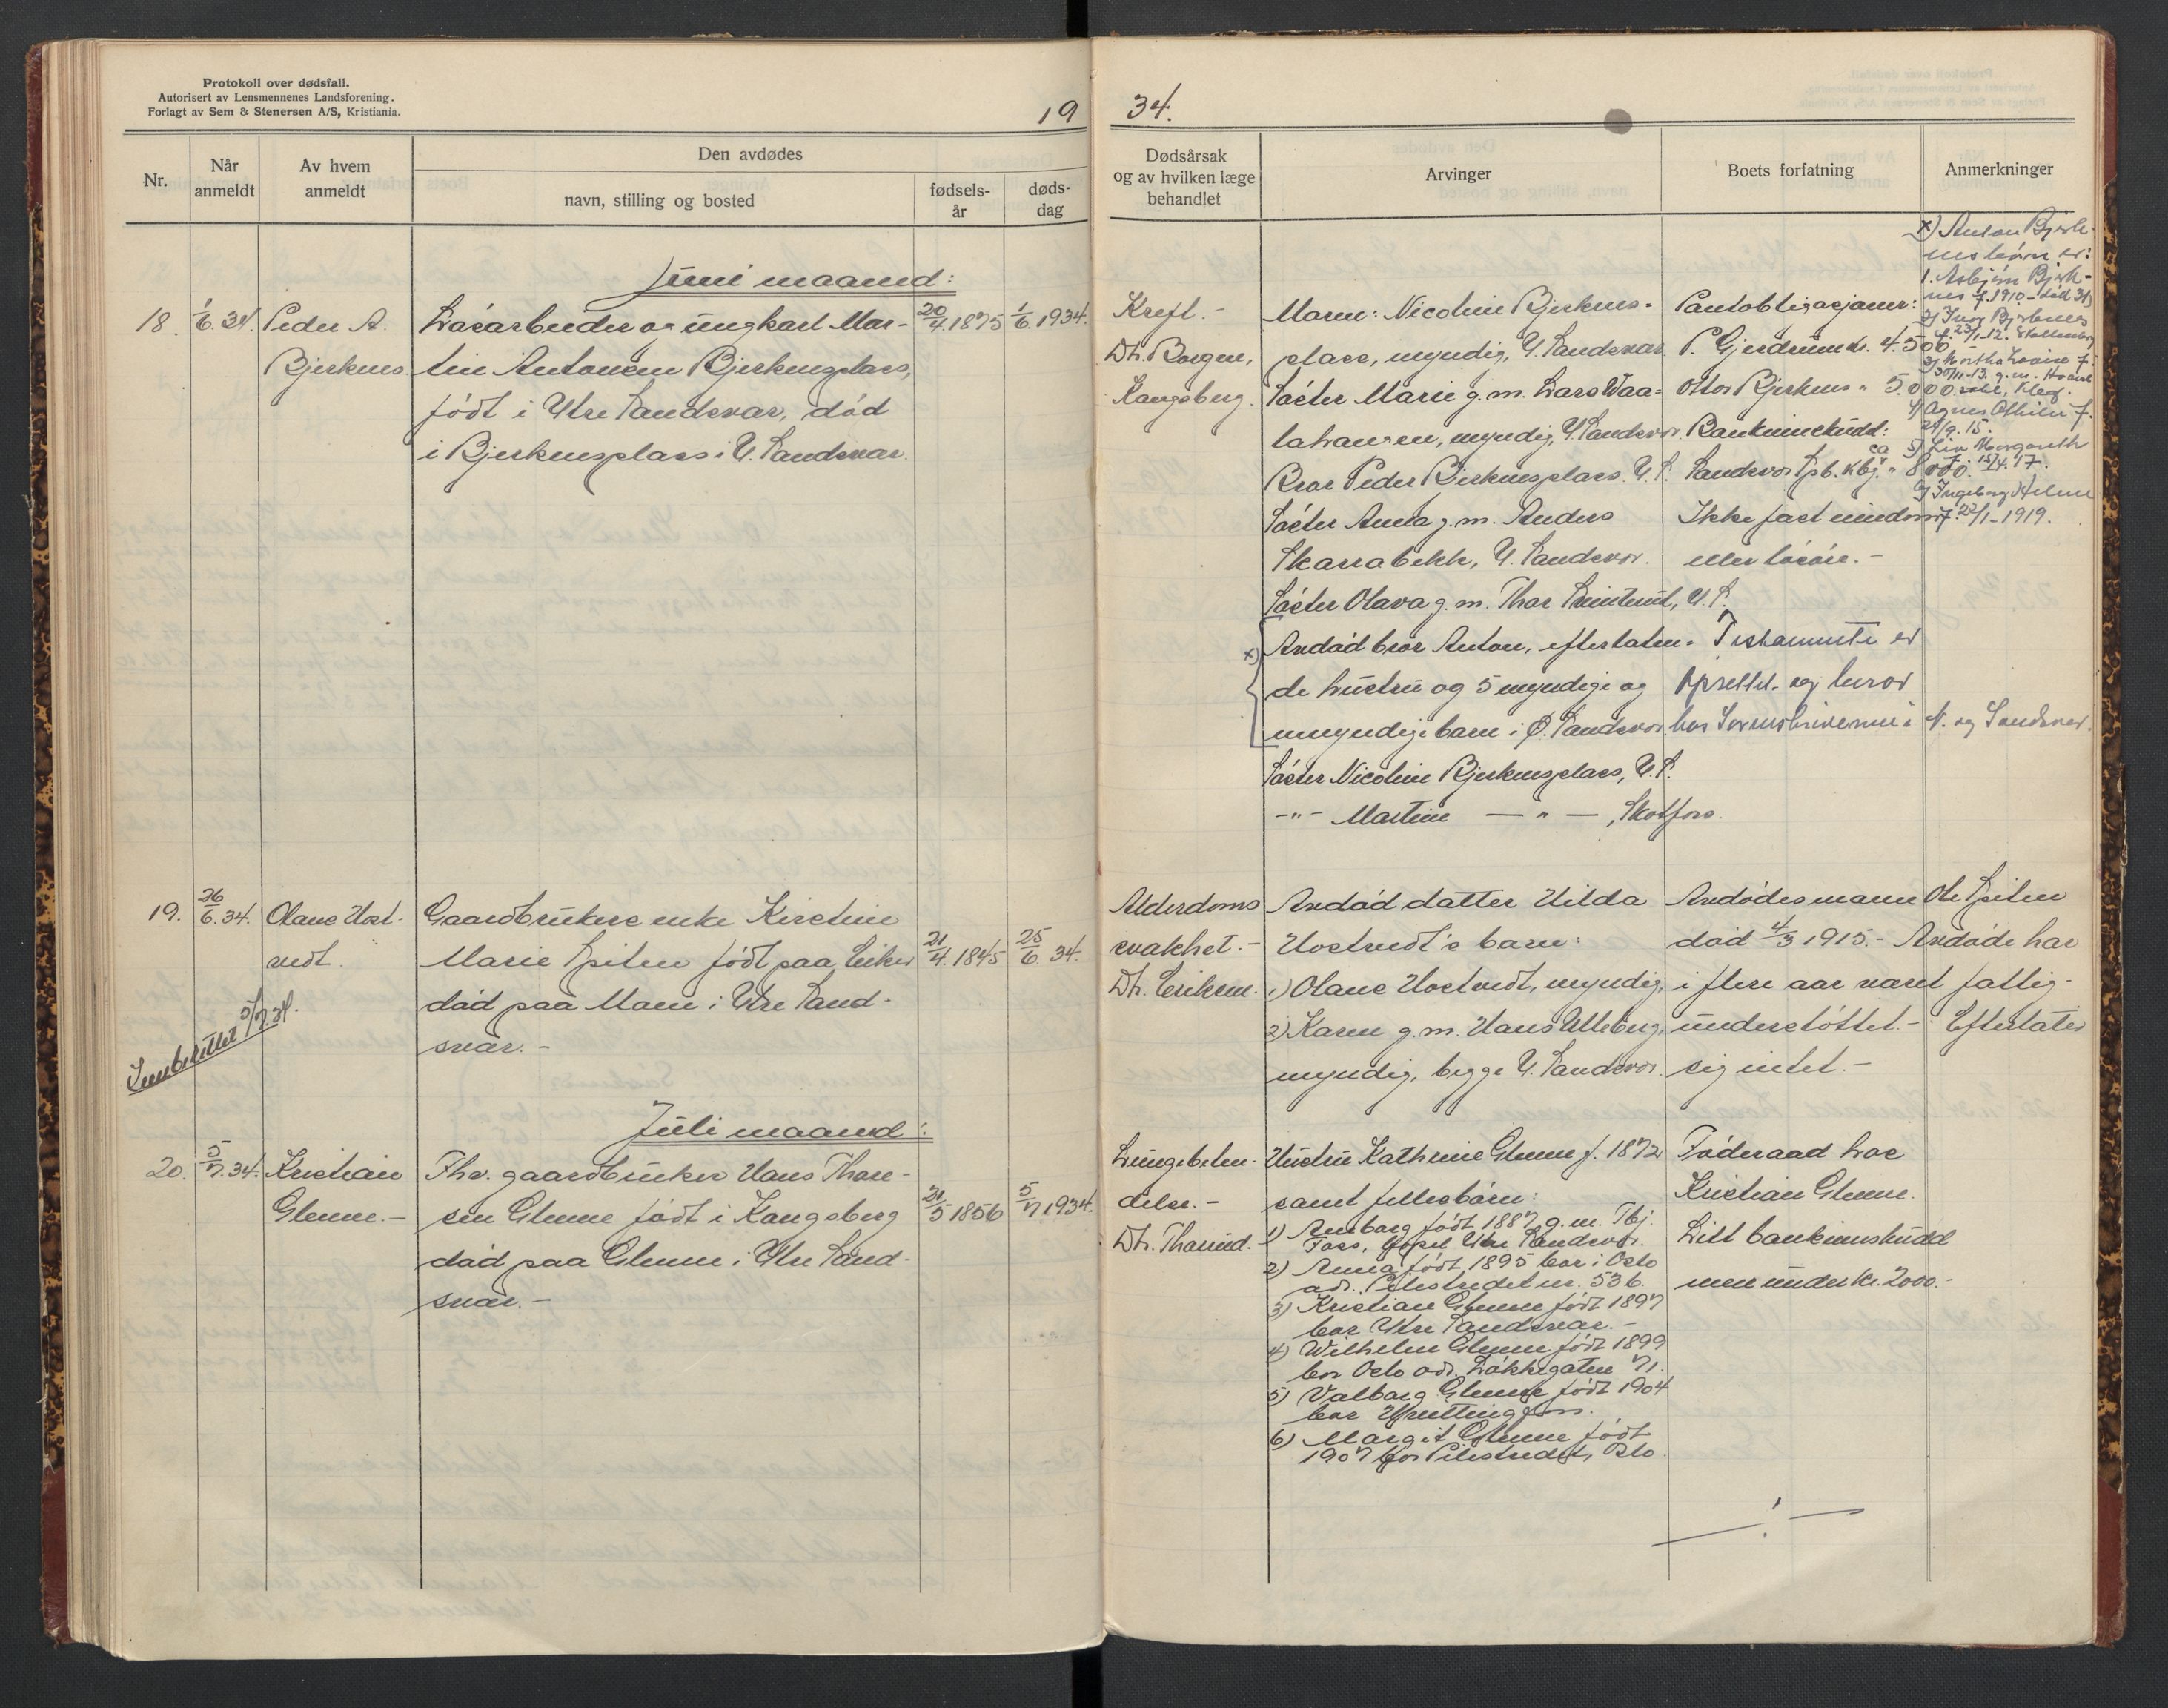 Protokoll over dødsfall.
Autorisert av Lensmennenes Landsforening.
Forlagt av Sem & Stenersen A/S, Kristiania.
19 34.
Nr.
Når anmeldt
Av hvem anmeldt
Den avdødes
navn, stilling og bosted
fødsels-år
døds-dag
Dødsårsak
og av hvilken læge
behandlet
Arvinger
Boets forfatning
Anmerkninger
Juni maaned:
18. 1/6.34. Peder A.
Bjerknes
Løsarbeider og ungkarl Mar-
tin Antonsen Bjerknesplass,
født i Ytre Sandsvær, død
i Bjerknesplass i Y. Sandsvær.
20/4.1875
1/6.1934.
Kreft.-
Dr. Borgen,
Kongsberg.
Nicoline Bjerknes-
plass, myndig, Y. Sandsvær.
Søster Marie g.m. Lars Waa-
lahansen, myndig, Y. Sandsvær.
Bror Peder Bjerknesplass. Y.S.
Søster Anna g.m. Anders
Skarrabekk, Y. Sandsvær.
Søster Olava g.m. Thor, Y.S.
x) Avdød bror Anton, efterlaten-
de hustru og 5 myndige og
umyndige barn i Ø. Sandsvær.
Søster Nicoline Bjerknesplass, Y.S.
-"- Martine -"-, Skotfoss.
Pantobligasjoner:
P. Gjerdrum kr. 4.500
Ottos Bjerknes " 5.000
Bankinnskudd:
Sandsvær Spb. Kbg. " ca 8000.
Ikke fast eiendom
eller løsøre.-
Testamente er
oprettet og beror
hos Sorenskriveren i N. og Sandsvær.
x) Anton Bjerk-
nes børn er:
1. Asbjørn Bjerk-
nes f. 1910
2) Bjerknes
3) Martha Lovise f.
4) Agnes Othilie f.
24/9.15.
5) Liv Margareth
f. 15/4.17.
6) Ingeborg Helene
f. 20/1-1919.
19. 26/6.34. Olaus Host-
vedt.
Gaardbrukers enke Kirstine
Marie Spiten født paa Eiker
død paa Moen i Ytre Sand-
svær.-
21/4.1845
25/6 34.
Alderdoms
svakhet.-
Dr. Eriksen.
Avdød datter Hilda
Hostvedt's barn:
1) Olaus Hostvedt, myndig,
2) Karen g.m. Hans Ulleberg,
myndig, begge Y. Sandsvær.
Avdødes mann Ole Spiten
død 4/3 1915.- Avdøde har
i flere aar været fattig-
understøttet.- Efterlater
sig intet.-
Innberettet 5/7 34.
Juli maaned:
20. 5/7.34. Kristian
Glenne.-
Fhv. gaardbruker Hans Thore-
sen Glenne født i Kongsberg
død paa Glenne i Ytre Sand-
svær.-
21/5 1856
5/7 1934.
Lungebeten-
delse.-
Dr. Thorud.
Hustru Kathrine Glenne f. 1872
samt fellesbørn:
1) født 1887 g.m. Tbj.
Foss, Ytre Sandsvær.
2) Anna født 1895 bor i Oslo
adr. Pilestredet nr. 53 b.
3) Kristian Glenne født 1897
bor Ytre Sandsvær.-
4) Wilhelm Glenne født 1899
bor Oslo adr. Løkkegaten 71.
5) Valborg Glenne født 1904
bor
6) Margit Glenne født
1907 bor Pilestredet, Oslo.
Føderaad hos
Kristian Glenne.
Litt bankinnskudd
men under kr. 2000.-